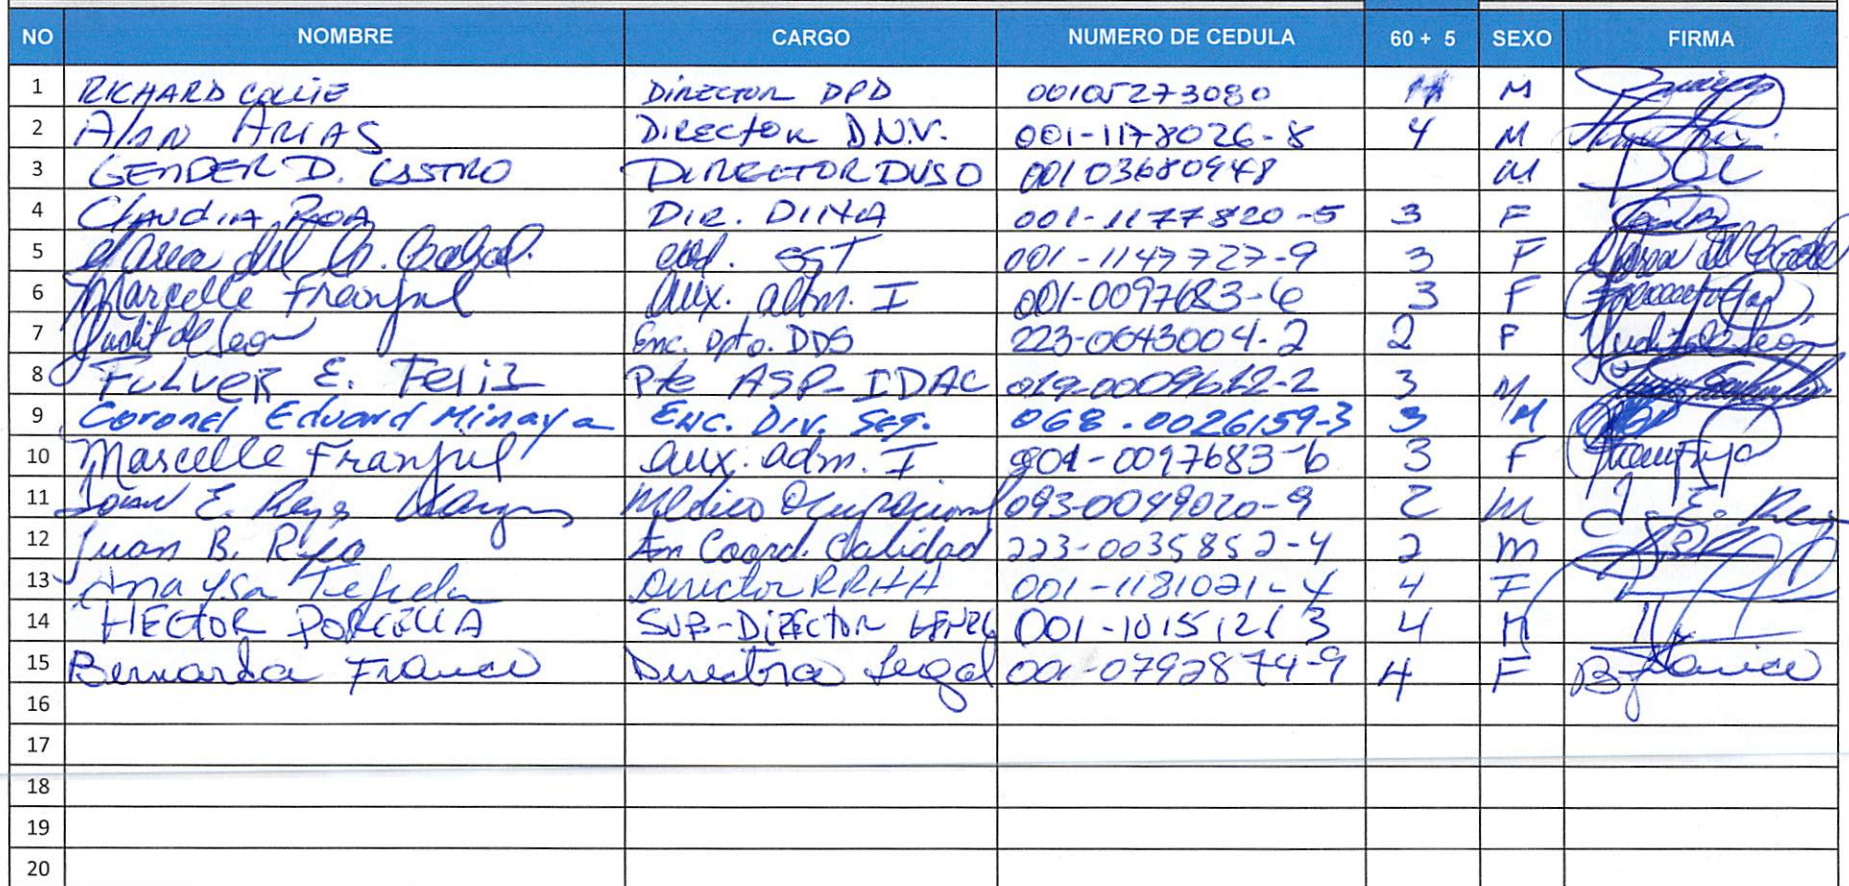 NO NOMBRE CARGO NUMERO DE CEDULA 60 + 5 SEXO FIRMA
1 RICHARD COLLIE DIRECTOR DPD 00105273080 M
2 Alan ARIAS DIRECTOR D.N.V. 001-1178026-8 4 M
3 GENDER D. CASTRO DIRECTOR DVSO 00103680948 M
4 CLAUDIA ROA DIR. DINA 001-1177820-5 3 F
5 SST 001-1147727-9 3 F
6 Marcelle Franjul aux. adm. I 001-0097683-6 3 F
7 Yudit de Leon Enc. Dpto. DDS 223-0043004-2 2 F Yudit de Leon
8 FULVER E. Feliz Pte ASP-IDAC 019-0009612-2 3 M
9 Coronel Eduard Minaya Enc. Div. Seg. 068-0026159-3 3 M
10 Marcelle Franjul aux. adm. I 001-0097683-6 3 F
11 E. Reyes Medico Ocupacional 093-0049020-9 2 M J. E. Rey
12 Juan B. Coord. Calidad 223-0035852-4 2 M
13 Ana Ysa Tejeda Director RRHH 001-1181021-4 4 F
14 HECTOR PORCELLA SUB-DIRECTOR 001-1015126 3 4 M
15 Bernarda Franco Directora Legal 001-0792874-9 4 F B Franco
16
17
18
19
20